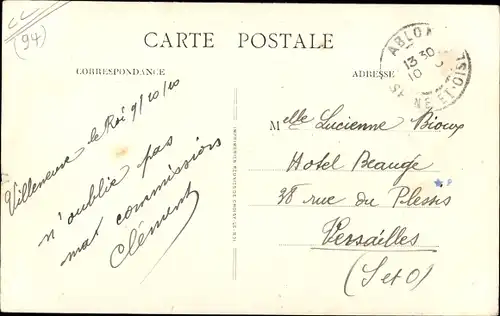 CC
(94)
CARTE POSTALE
CORRESPONDANCE
ADRESSE
ABLON
13 30
10
SEINE-ET-OISE
Villeneuve le Roi 9/10/10
n'oublie pas
mas commissions
Clément
Melle Lucienne Bioux
Hotel Beauge
38 rue du Plessis
Versailles
(S et O)